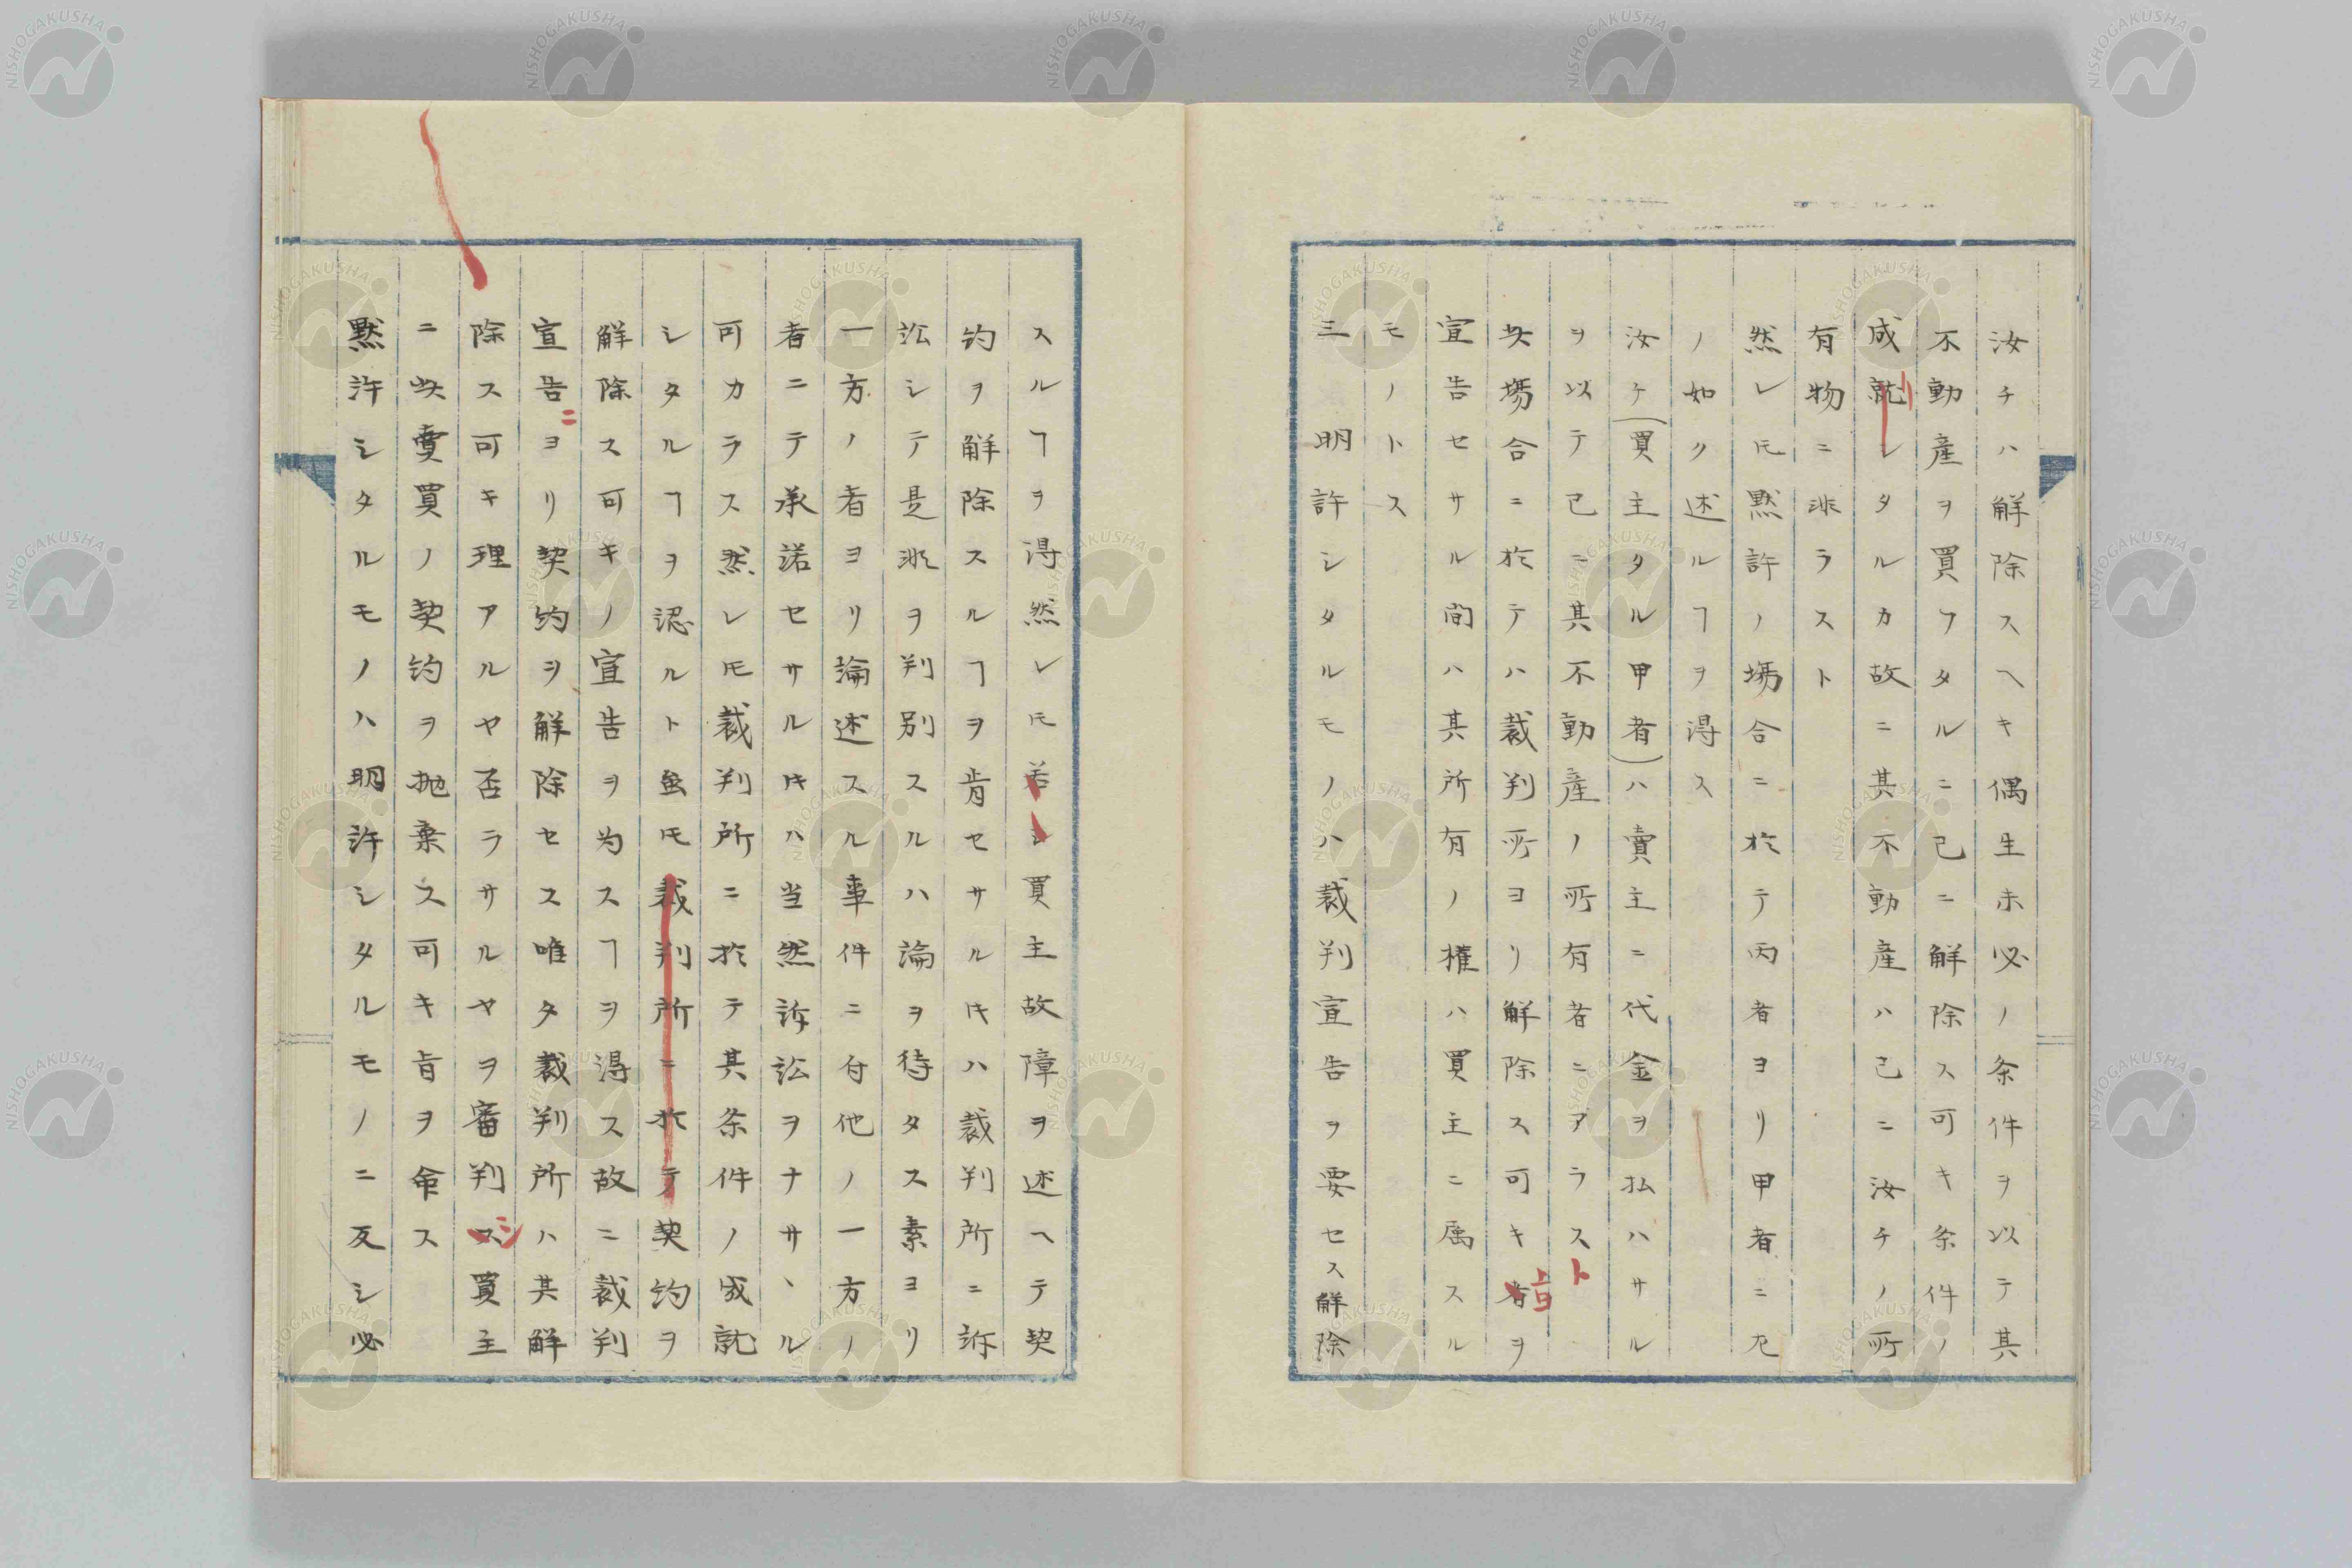 汝チハ解除スヘキ偶生未必ノ条件ヲ以テ其
不動産ヲ買フタルニ已ニ解除ス可キ条件ノ
成就シタルカ故ニ其不動産ハ已ニ汝チノ所
有物ニ非ラスト
然レ𪜈黙許ノ場合ニ於テ丙者ヨリ甲者ニ
ノ如ク述ルヿヲ得ス
汝ケ(買主タル甲者)ハ賣主ニ代金ヲ払ハサル
ヲ以テ已ニ其不動産ノ所有者ニアラスト
此場合ニ於テハ裁判所ヨリ解除ス可キ旨ヲ
宣告セサル間ハ其所有ノ権ハ買主ニ属スル
モノトス
三 明許シタルモノハ裁判宣告ヲ要セス解除
スルヿヲ得然レ𪜈若シ買主故障ヲ述ヘテ契
约ヲ解除スルヿヲ肯セサル片ハ裁判所ニ訴
訟シテ是非ヲ判別スルハ論ヲ待タス素ヨリ
一方ノ者ヨリ論述スル事件ニ付他ノ一方ノ
者ニテ承諾セサル片ハ当然訴訟ヲナサヽル
可カラス然レ𪜈裁判所ニ於テ其条件ノ成就
シタルヿヲ認ルト虽𪜈裁判所ニ於テ契约ヲ
解除ス可キノ宣告ヲ为スヿヲ得ス故ニ裁判
宣告ニヨリ契约ヲ解除セス唯タ裁判所ハ其解
除ス可キ理アルヤ否ラサルヤヲ審判シ買主
ニ此賣買ノ契约ヲ抛棄ス可キ旨ヲ命ス
黙許シタルモノハ明許シタルモノニ反シ必
NISHOGAKUSHA